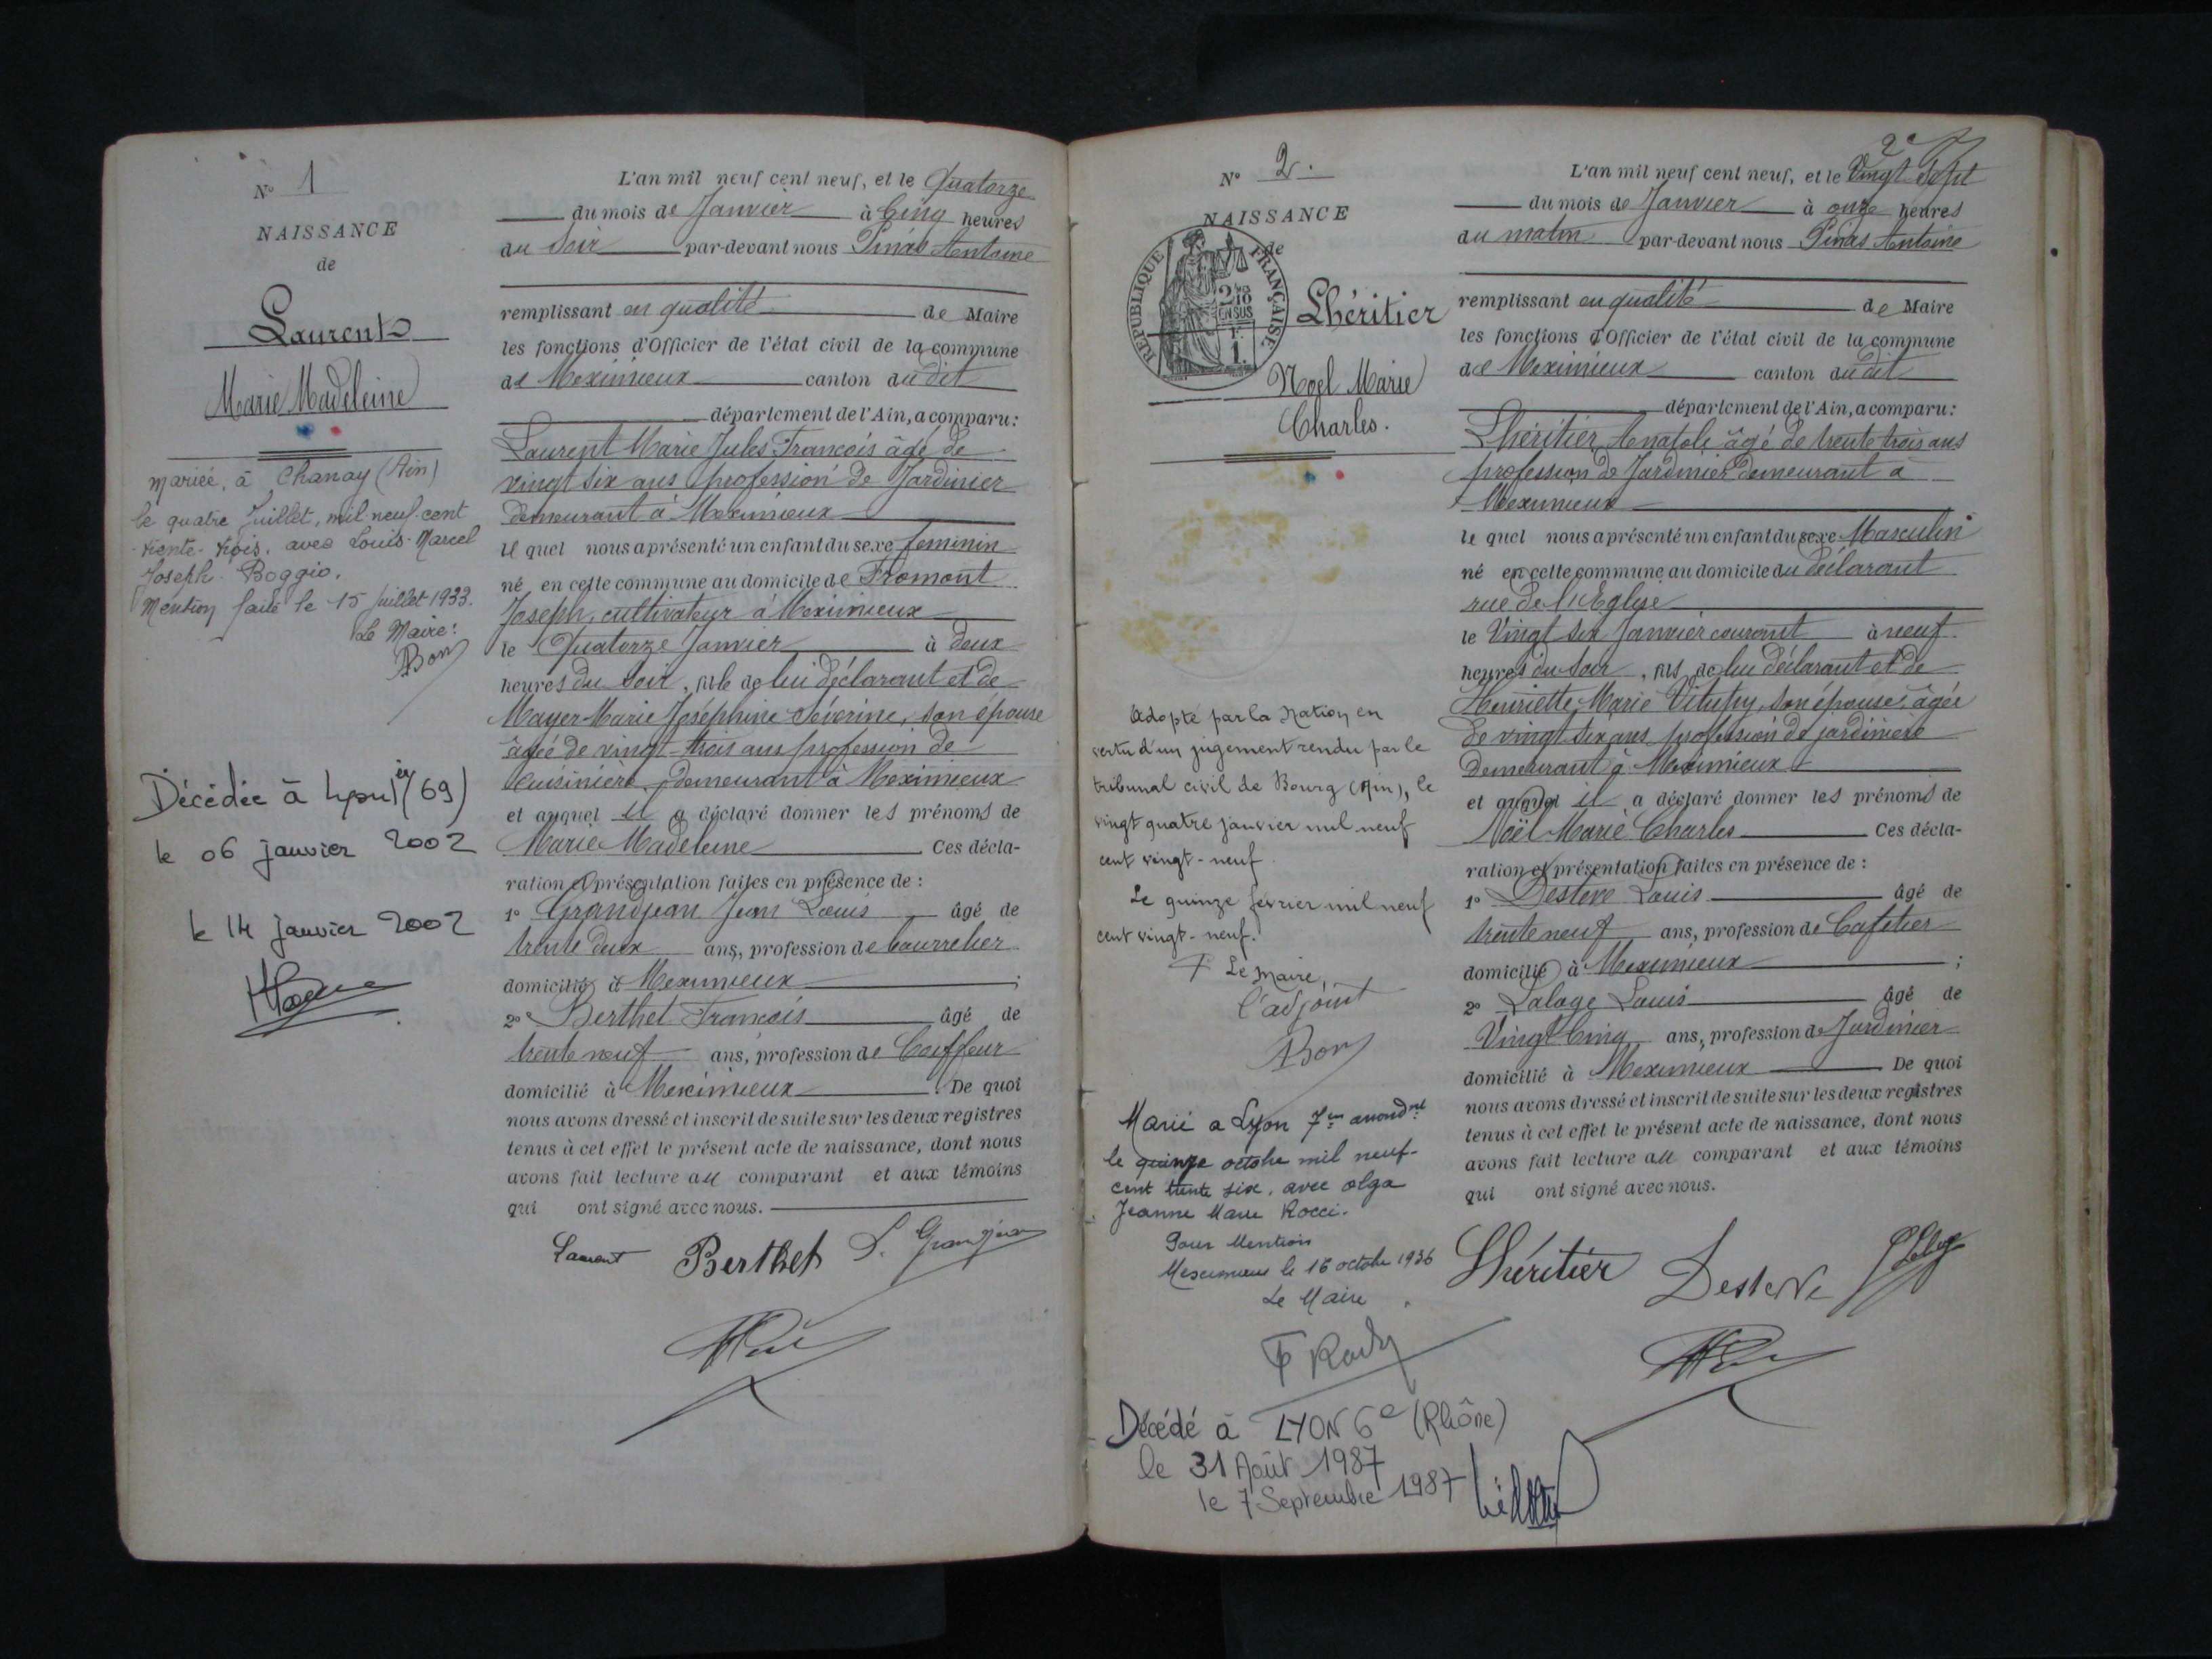 N° 1
NAISSANCE
de
Laurent
Marie Madeleine
mariée, à Chanay (Ain)
le quatre Juillet, mil neuf cent
trente-trois, avec Louis-Marcel
Joseph Boggio.
Mention faite le 15 juillet 1933.
Le Maire:
Bon
Décédée à Lyon 1er (69)
le 06 janvier 2002
le 14 janvier 2002
L'an mil neuf cent neuf, et le Quatorze
du mois de Janvier à Cinq heures
du Soir par-devant nous Pinas Antoine
remplissant en qualité de Maire
les fonctions d'Officier de l'état civil de la commune
de Meximieux canton du dit
département de l'Ain, a comparu:
Laurent Marie Jules François âgé de
vingt six ans profession de Jardinier
demeurant à Meximieux
le quel nous a présenté un enfant du sexe feminin
né en cette commune au domicile de Fromont
Joseph, cultivateur à Meximieux
le Quatorze Janvier à deux
heures du Soir, fille de lui déclarant et de
Mayer Marie Joséphine Séverine, son épouse
âgée de vingt-trois ans profession de
Cuisinière, demeurant à Meximieux
et auquel il a déclaré donner les prénoms de
Marie Madeleine Ces décla-
ration et présentation faites en présence de :
1° Grandjean Jean Louis âgé de
trente deux ans, profession de bourrelier
domicilié à Meximieux ;
2° Berthet François âgé de
trente neuf ans, profession de Coiffeur
domicilié à Meximieux. De quoi
nous avons dressé et inscrit de suite sur les deux registres
tenus à cet effet le présent acte de naissance, dont nous
avons fait lecture au comparant et aux témoins
qui ont signé avec nous.
Laurent Berthet L. Grandjean
2e
N° 2.
NAISSANCE
de
REPUBLIQUE FRANÇAISE
2/10
EN SUS
1
Lhéritier
Noel Marie
Charles.
Adopté par la Nation en
vertu d'un jugement rendu par le
tribunal civil de Bourg (Ain), le
vingt quatre janvier mil neuf
cent vingt-neuf.
Le quinze février mil neuf
cent vingt-neuf.
Le Maire,
l'adjoint
Bon
Marié a Lyon 7em arrondnt
le quinze octobre mil neuf-
cent trente six, avec olga
Jeanne Marie Rocci.
Pour Mention
Meximieux le 16 octobre 1936
Le Maire
Décédé à LYON 6e (Rhône)
le 31 Août 1987
le 7 Septembre 1987
L'an mil neuf cent neuf, et le Vingt Sept
du mois de Janvier à onze heures
du matin par-devant nous Pinas Antoine
remplissant en qualité de Maire
les fonctions d'Officier de l'état civil de la commune
de Meximieux canton du dit
département de l'Ain, a comparu:
Lhéritier Anatole âgé de trente trois ans
profession de Jardinier demeurant à
Meximieux
le quel nous a présenté un enfant du sexe Masculin
né en cette commune au domicile du déclarant
rue de l'Eglise
le Vingt six Janvier courant à neuf
heures du soir, fils de lui déclarant et de
Henriette Marie Vitupy, son épouse, âgée
de vingt six ans profession de jardinière
demeurant à Meximieux
et auquel il a déclaré donner les prénoms de
Noël Marie Charles Ces décla-
ration et présentation faites en présence de :
1° Destere Louis âgé de
trente neuf ans, profession de Cafetier
domicilié à Meximieux ;
2° Lalage Louis âgé de
Vingt Cinq ans, profession de Jardinier
domicilié à Meximieux De quoi
nous avons dressé et inscrit de suite sur les deux registres
tenus à cet effet le présent acte de naissance, dont nous
avons fait lecture au comparant et aux témoins
qui ont signé avec nous.
Lhéritier